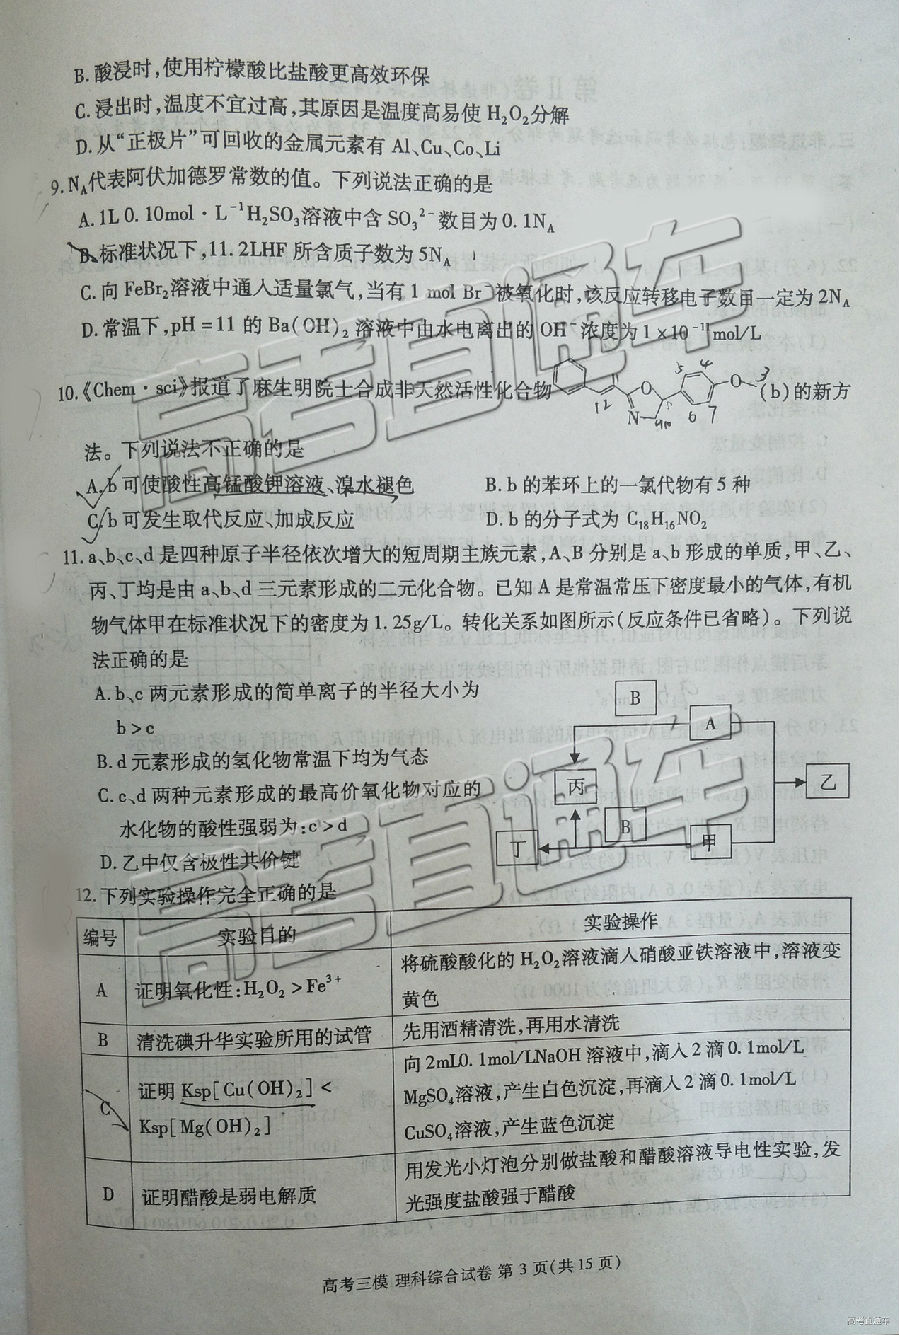 B.酸浸时,使用柠檬酸比盐酸更高效环保
C.浸出时,温度不宜过高,其原因是温度高易使 H₂O₂分解
D.从“正极片”可回收的金属元素有 Al、Cu、Co、Li
9.N_A代表阿伏加德罗常数的值。下列说法正确的是
A.1L 0.10mol·L⁻¹H₂SO₃溶液中含 SO₃²⁻数目为 0.1N_A
B.标准状况下,11.2LHF 所含质子数为 5N_A
C.向 FeBr₂溶液中通入适量氯气,当有 1 mol Br⁻被氧化时,该反应转移电子数目一定为 2N_A
D.常温下,pH=11 的 Ba(OH)₂溶液中由水电离出的 OH⁻浓度为 1×10⁻¹¹mol/L
10.《Chem·sci》报道了麻生明院士合成非天然活性化合物 (b)的新方
法。下列说法不正确的是
A.b 可使酸性高锰酸钾溶液、溴水褪色
B.b 的苯环上的一氯代物有 5 种
C.b 可发生取代反应、加成反应
D.b 的分子式为 C₁₈H₁₆NO₂
11.a、b、c、d 是四种原子半径依次增大的短周期主族元素,A、B 分别是 a、b 形成的单质,甲、乙、
丙、丁均是由 a、b、d 三元素形成的二元化合物。已知 A 是常温常压下密度最小的气体,有机
物气体甲在标准状况下的密度为 1.25g/L。转化关系如图所示(反应条件已省略)。下列说
法正确的是
A.b、c 两元素形成的简单离子的半径大小为
b>c
B.d 元素形成的氢化物常温下均为气态
C.c、d 两种元素形成的最高价氧化物对应的
水化物的酸性强弱为:c>d
D.乙中仅含极性共价键
B
A
丙
乙
B
丁
甲
12.下列实验操作完全正确的是
编号 实验目的 实验操作
A 证明氧化性:H₂O₂>Fe³⁺ 将硫酸酸化的 H₂O₂溶液滴入硝酸亚铁溶液中,溶液变
黄色
B 清洗碘升华实验所用的试管 先用酒精清洗,再用水清洗
C 证明 Ksp[Cu(OH)₂]<
Ksp[Mg(OH)₂]
向 2mL0.1mol/LNaOH 溶液中,滴入 2 滴 0.1mol/L
MgSO₄溶液,产生白色沉淀,再滴入 2 滴 0.1mol/L
CuSO₄溶液,产生蓝色沉淀
D 证明醋酸是弱电解质 用发光小灯泡分别做盐酸和醋酸溶液导电性实验,发
光强度盐酸强于醋酸
高考三模 理科综合试卷 第 3 页(共 15 页)
高考直通车
高考直通车
高考直通车